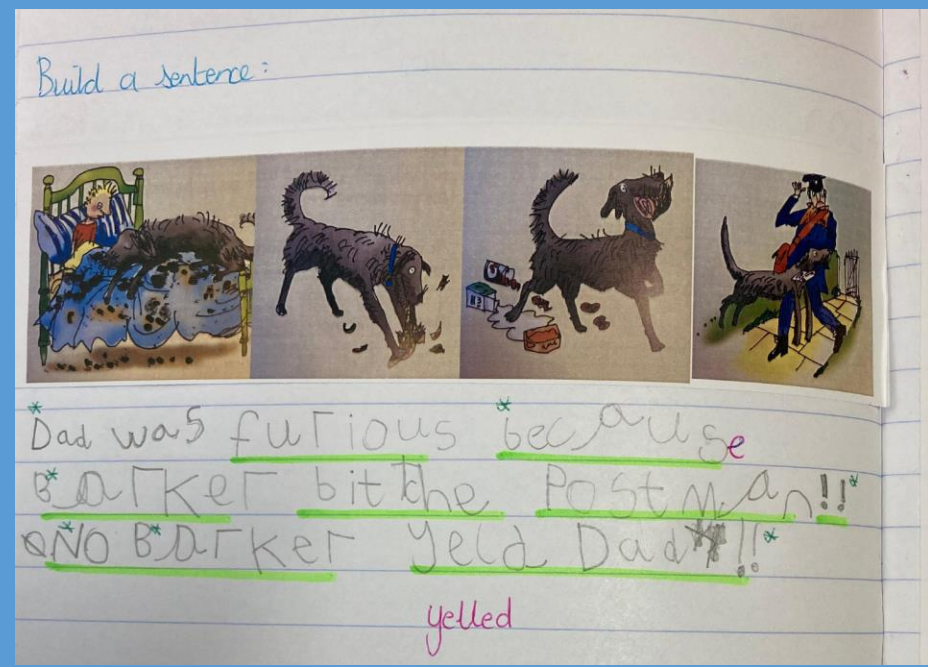 Build a sentence:
Dad was furious because
Barker bit the Postman!!
NO Barker yeld Dad!!
yelled